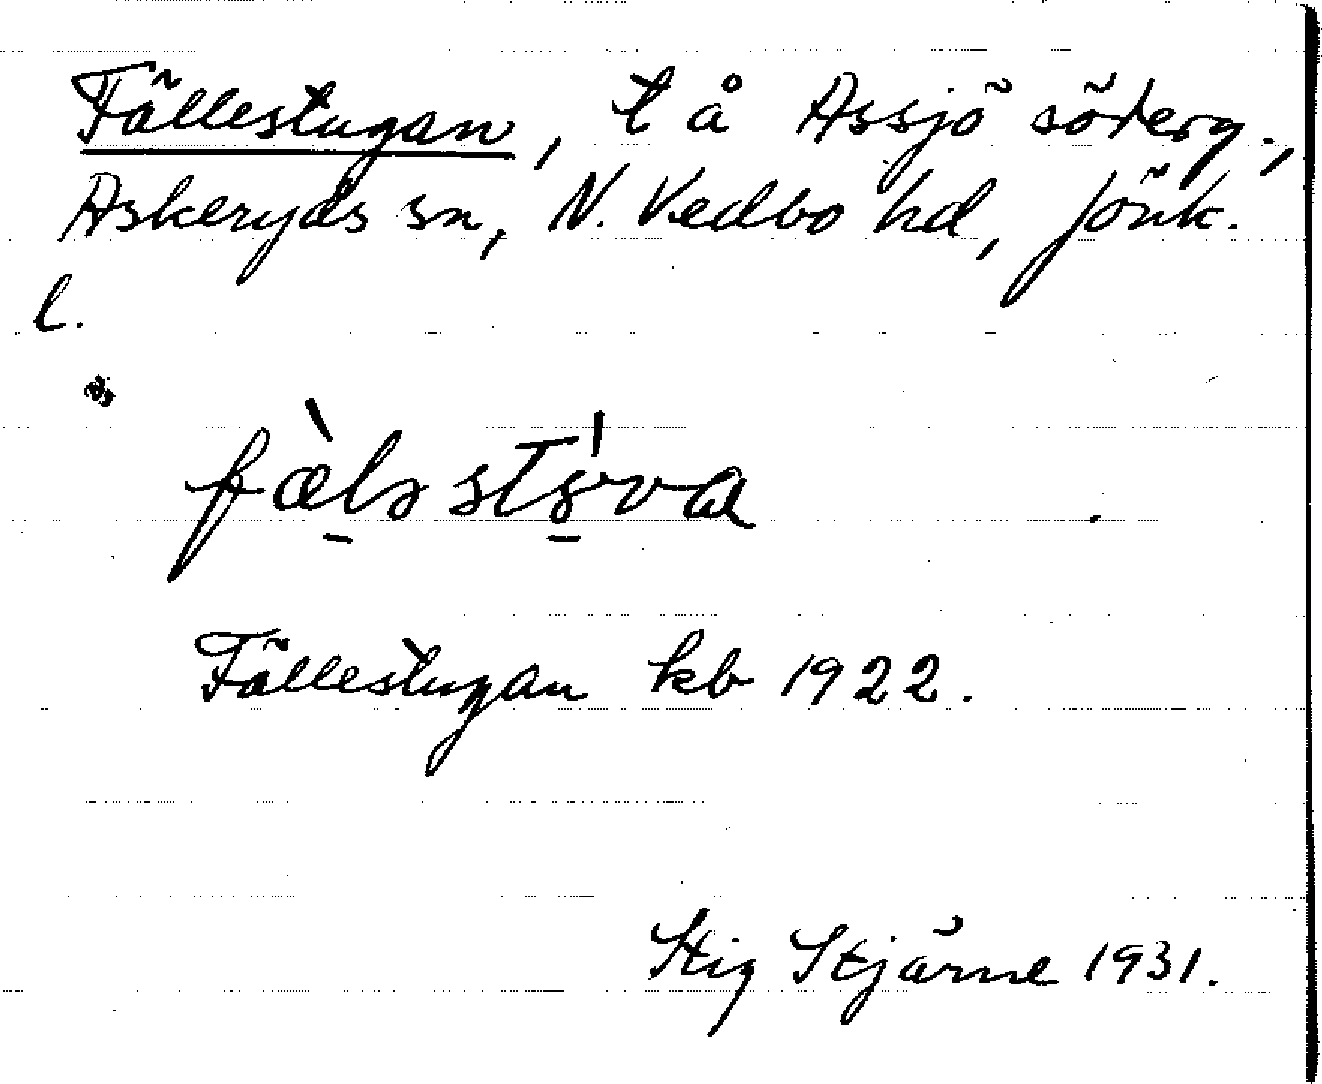 Fällestugan, t å Assjö söderg.,
Askeryds sn, N. Vedbo hd, Jönk.
l.
fæ̀ləstúva
Fällestugan kb 1922.
Stig Stjärne 1931.